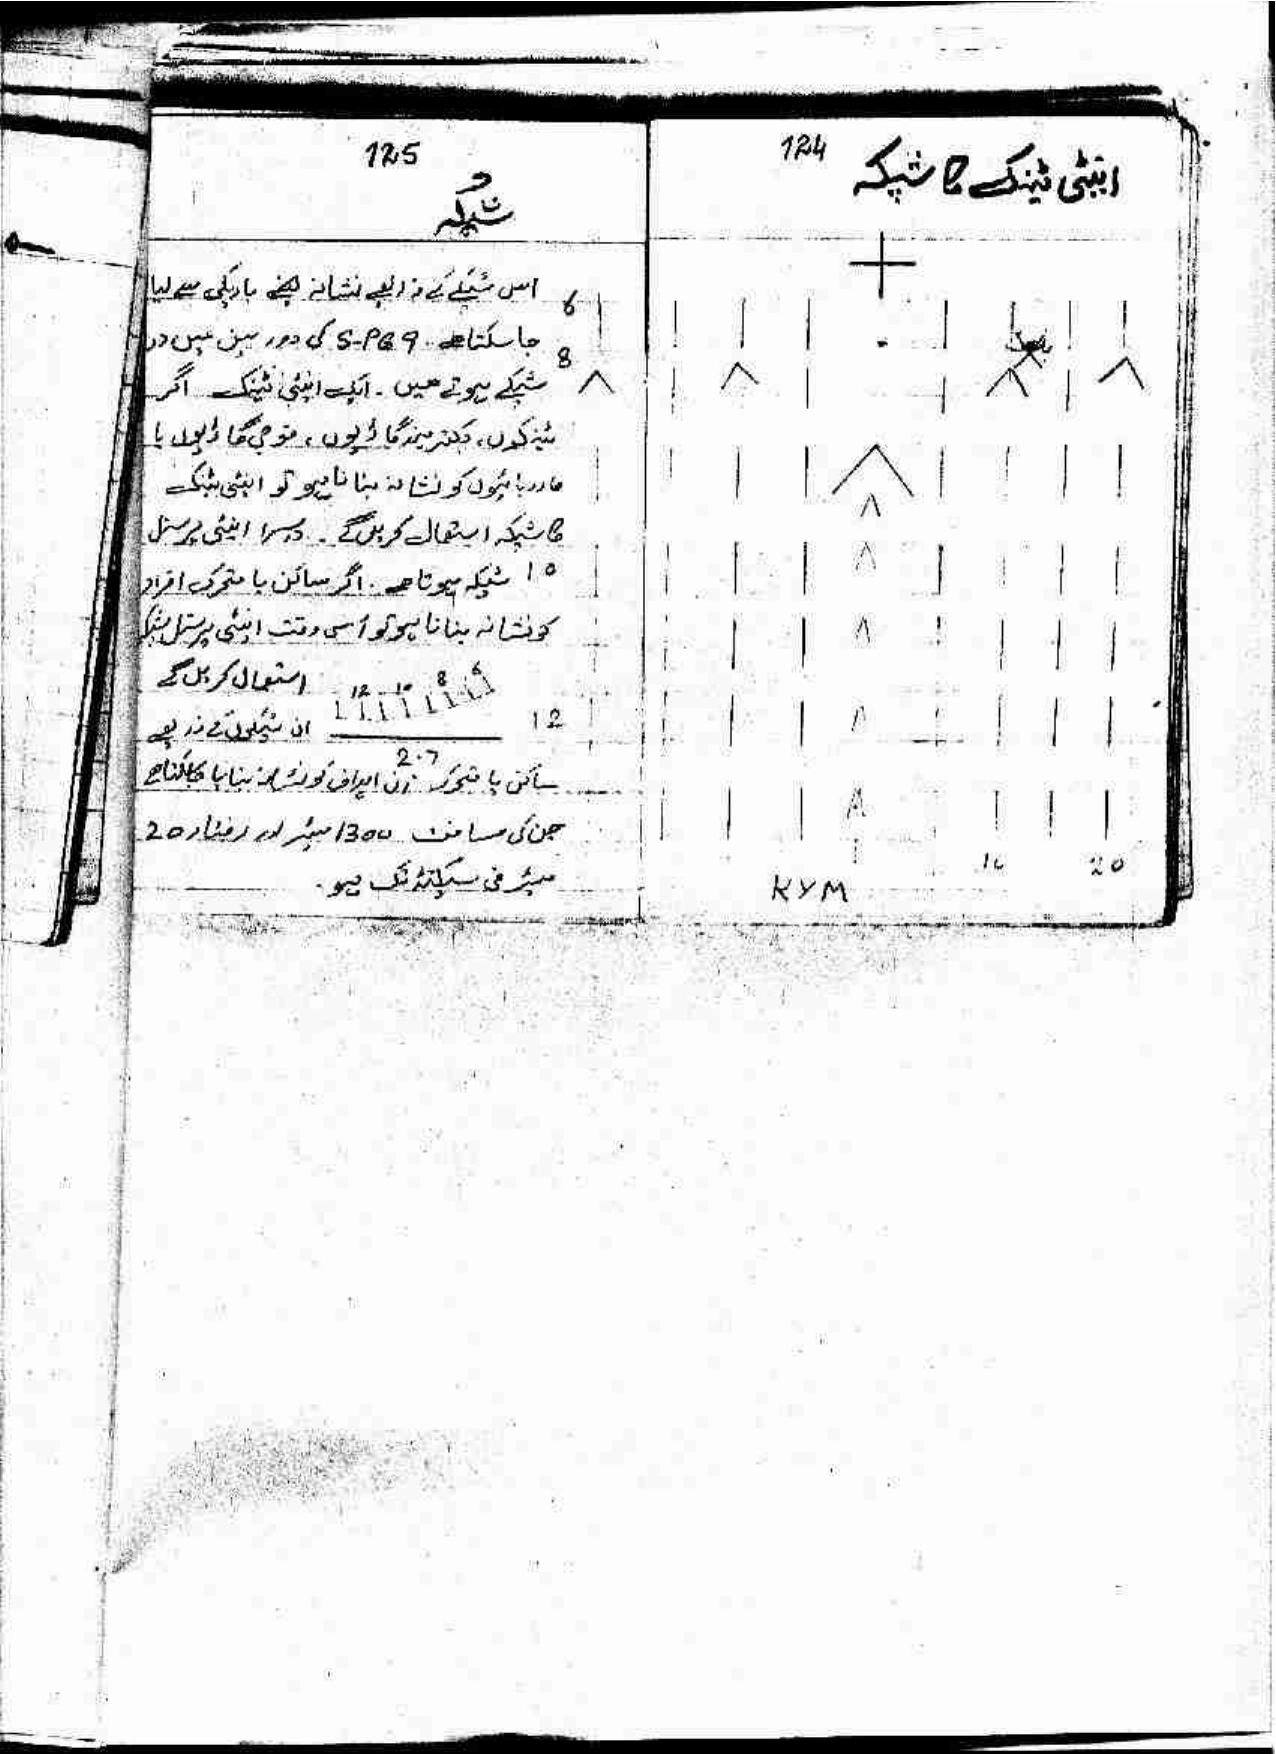 124
اینٹی ٹینک کا شپکہ
KYM
16
20
125
شپکہ
6
8
10
12
اس شپکے کے ذریعے نشانہ باریکی سے لیا
جا سکتا ہے۔ S-PG9 کی دور بین میں دو
شپکے ہوتے ہیں۔ ایک اینٹی ٹینک اگر
ٹینکوں، بکتربند گاڑیوں، فوجی گاڑیوں یا
کو نشانہ بنانا ہو تو اینٹی ٹینک
کا شپکہ استعمال کریں گے۔ دوسرا اینٹی پرسنل
شپکہ ہوتا ہے۔ اگر ساکن یا متحرک افراد
کو نشانہ بنانا ہو تو اسی وقت اینٹی پرسنل شپکہ
استعمال کریں گے
12 10 8 6
2.7
ان شپکوں کے ذریعے
ساکن یا متحرک اہداف کو نشانہ بنایا جا سکتا ہے
جن کی مسافت 1300 میٹر اور رفتار 20
میٹر فی سیکنڈ تک ہو۔